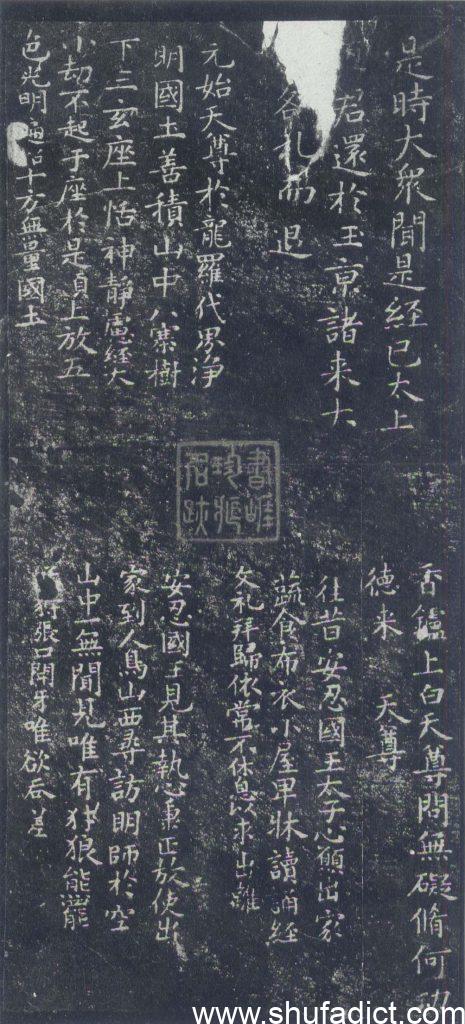 是時大衆聞是經已太上
君還於玉京諸来大
各礼而退
元始天尊於龍羅代界淨
明國土善積山中八寨樹
下三玄座上恬神靜慮經大
小劫不起于座於是貞上放五
色光明遍十方無量國土
香鑪上白天尊問無礙脩何功
德来 天尊
往昔安忍國王太子心願出家
蔬食布衣小屋卑牀讀誦經
文礼拜歸依常不休息以求出離
安忍國王見其執心秉正放使出
家到人鳥山西尋訪明師於空
山中一無聞見唯有犲狼能羆
狩張口開牙唯欲吞
www.shufadict.com